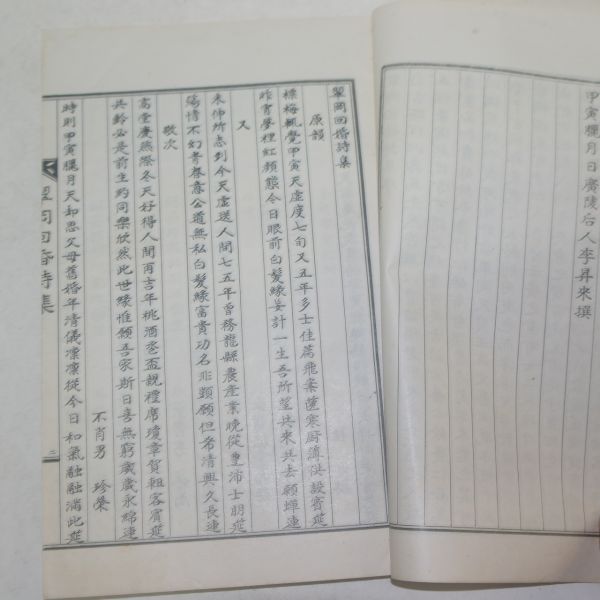 甲寅臘月日廣陵后人李昇來撰
翠岡回婚詩集
原韻
標梅輒覺甲寅天虛度七旬又五年多士佳篇飛案篋寒厨薄供設賓筵
昨宵夢裡紅顏態今日眼前白髮緣妄計一生吾所望共來共去願蟬連
又
未伸所志到今天虛送人間七五年曾務龍縣農產業晩從豊沛士朋筵
傷情不幻靑春意公道無私白髮緣富貴功名非類願但希清興久長連
敬次
高堂慶讌際冬天好得人間再吉年桃酒壺盃親禮席瓊章賀軸客賓筵
共齡必是前生約同樂欣然此世緣惟願吾家斯日喜無窮歲歲永綿連
不肖男 珍榮
時則甲寅臘月天却思父母舊婚年清儀凛凛從今日和氣融融滿此筵
翠岡回婚詩集
二